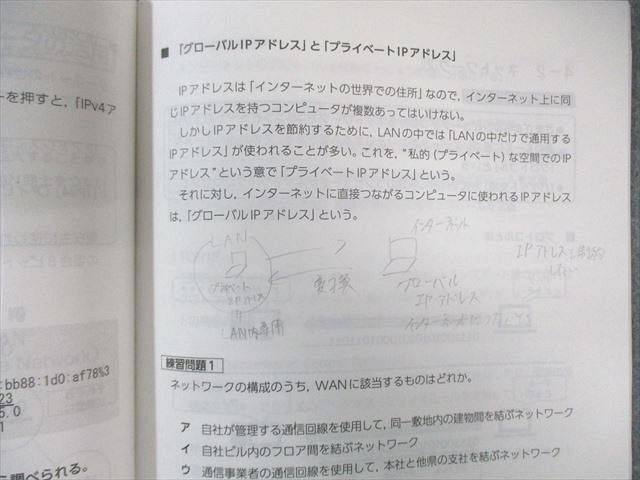 ■ 「グローバルIPアドレス」と「プライベートIPアドレス」
IPアドレスは「インターネットの世界での住所」なので，インターネット上に同
じIPアドレスを持つコンピュータが複数あってはいけない。
しかしIPアドレスを節約するために，LANの中では「LANの中だけで通用する
IPアドレス」が使われることが多い。これを，“私的（プライベート）な空間でのIP
アドレス”という意で「プライベートIPアドレス」という。
それに対し，インターネットに直接つながるコンピュータに使われるIPアドレス
は，「グローバルIPアドレス」という。
LAN
インターネット
プライベート
IPアドレス
LAN内専用
変換
グローバル
IPアドレス
IPアドレス
練習問題1
ネットワークの構成のうち，WANに該当するものはどれか。
ア 自社が管理する通信回線を使用して，同一敷地内の建物間を結ぶネットワーク
イ 自社ビル内のフロア間を結ぶネットワーク
ウ 通信事業者の通信回線を使用して，本社と他県の支社を結ぶネットワーク
ーを押すと，「IPv4ア
:bb88:1d0:af78%3
23
5.0
1
に調べられる。